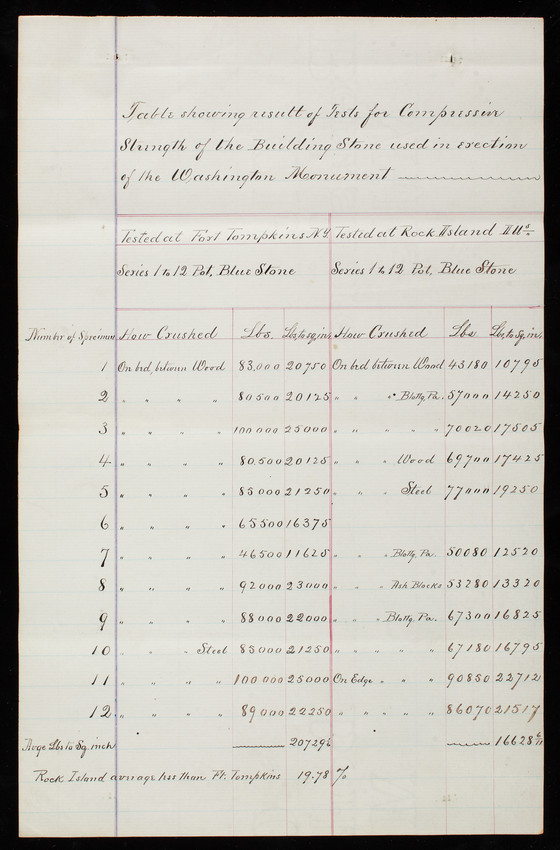 Table showing result of Tests for Compressive
Strength of the Building Stone used in erection
of the Washington Monument
Tested at Fort Tompkins N.Y. Tested at Rock Island Ills.
Series 1 to 12 Pot. Blue Stone Series 1 to 12 Pot. Blue Stone
Number of Specimen How Crushed Lbs. Lbs. to sq. in. How Crushed Lbs. Lbs. to Sq. in.
1 On bed, between Wood 83,000 20750 On bed between Wood 43180 10795
2 " " " " 80500 20125 " " " Blottg. Pa. 57000 14250
3 " " " " 100000 25000 " " " " " 70020 17505
4 " " " " 80500 20125 " " " Wood 69700 17425
5 " " " " 85000 21250 " " " Steel 77000 19250
6 " " " " 65500 16375
7 " " " " 46500 11625 " " " Blottg. Pa. 50080 12520
8 " " " " 92000 23000 " " " Ash Blocks 53280 13320
9 " " " " 88000 22000 " " " Blottg. Pa. 67300 16825
10 " " " Steel 85000 21250 " " " " " 67180 16795
11 " " " " 100000 25000 On Edge " " " 90850 22712
12 " " " " 89000 22250 " " " " " 86070 21517
Avge Lbs to Sq. inch 20729 16628
Rock Island average less than Ft. Tompkins 19.78 %